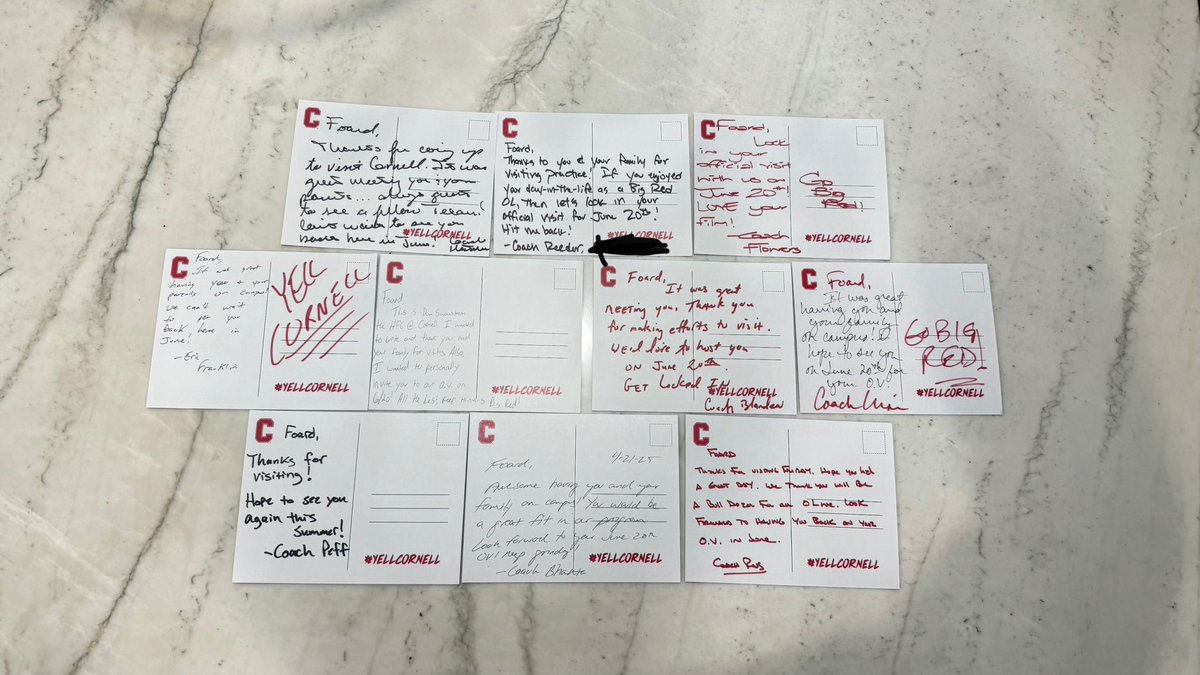 C
Foard,
Thanks for coming up
to visit Cornell. It was
great meeting you & your
parents... always great
to see a fellow
want to see you
back here in June. Coach
#YELLCORNELL
C
Foard,
Thanks to you & your family for
visiting practice! If you enjoyed
your day-in-the-life as a Big Red
OL, then lets lock in your
official visit for June 20th!
Hit me back!
- Coach Reeder,
#YELLCORNELL
C
Foard,
Lock
in your
official visit
with us on
June 20th!
LOVE your
film!
- Coach
Flowers
Go
Big
Red!
#YELLCORNELL
C
Foard,
It was great
having you & your
parents on campus
We can't wait
to get you
back here in
June!
- Eric
Franklin
YELL
CORNELL
#YELLCORNELL
C
Foard
This is Dan Swanstrom
the HFC @ Cornell. I wanted
to write and thank you and
your family for visiting. Also
I wanted to personally
invite you to our O.V. on
6/20! All the best. Keep
Big Red!
#YELLCORNELL
C
Foard,
It was great
meeting you, thank you
for making efforts to visit.
We'd love to host you
on June 20th.
GET Locked IN
#YELLCORNELL
Coach
C
Foard,
It was great
having you and
your family
on campus! I
hope to see you
on June 20th for
your O.V.
Coach
GO BIG
RED!
#YELLCORNELL
C
Foard,
Thanks for
visiting!
Hope to see you
again this
summer!
- Coach Paff
#YELLCORNELL
C
4-21-25
Foard,
Awesome having you and your
family on campus. You would be
a great fit in our program
Look forward to your June 20th
OV! Keep grinding!
- Coach Bhakta
#YELLCORNELL
C
Foard
Thanks for visiting Friday. Hope you had
a great day. We think you will be
a bull dozer for our OLine. Look
forward to having you back on your
O.V. in June.
Coach
#YELLCORNELL